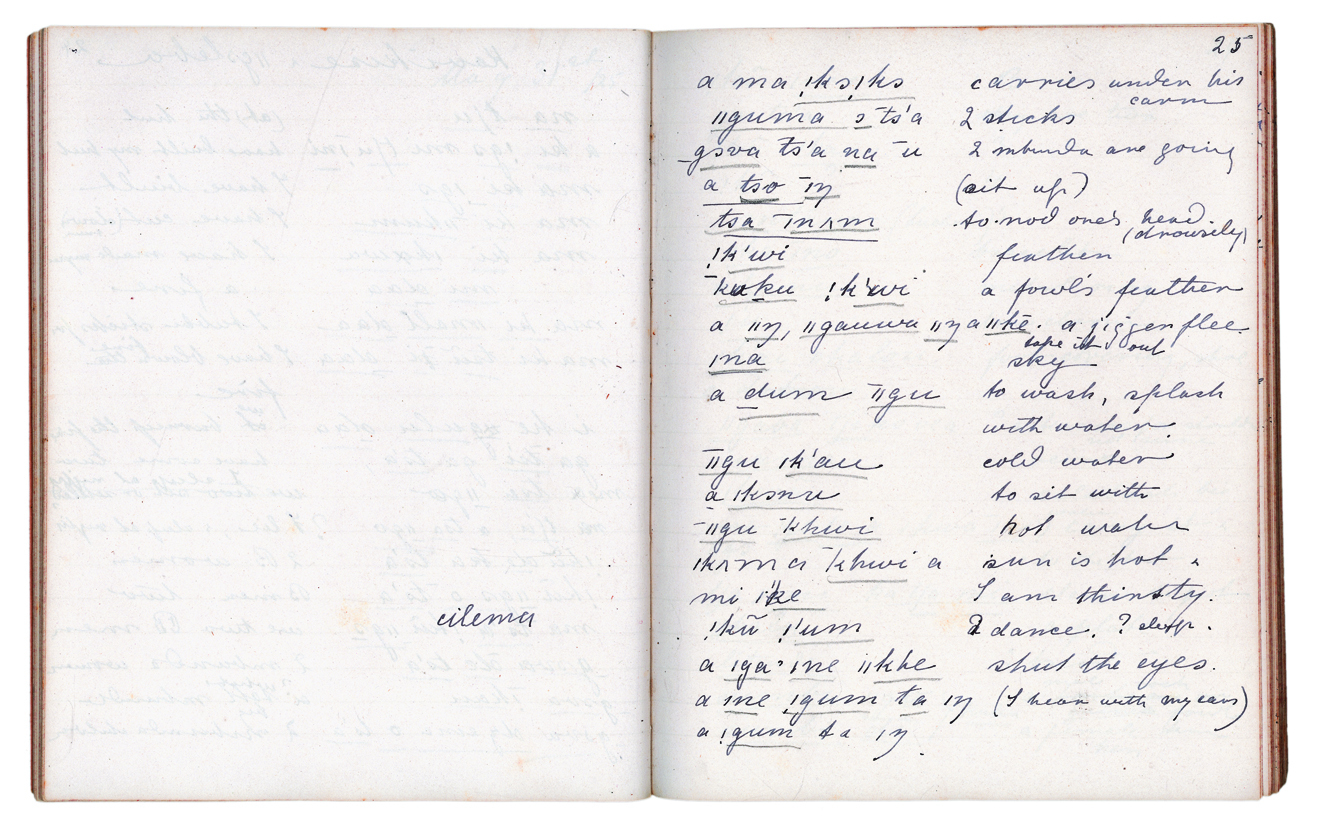 cilema
25
a ma ǃksǃks carries under his
carm
ǁguma s ts'a 2 sticks
gsva ts'a na ū 2 mbunda are going
a tso īŋ (sit up)
tsa īnʌm to nod one's head
(drowsily)
ǃk'wi feather
kuku ǃk'wi a fowl's feather
a ǁŋ, ǁgauwa ǁŋa ǁkē. a jigger flee
take it out
ına sky
a dum ǁgu to wash, splash
with water.
ǁgu ık'au cold water
a ıksnu to sit with
ǁgu khwi hot water
ıkʌma khwi a sun is hot.
mi I am thirsty.
ǃkū ǃ'um dance. ? sleep.
a ıga ıne ǁkhe shut the eyes.
a ıne ıgum ta ıŋ (I hear with my ears)
a ıgum ta ıŋ